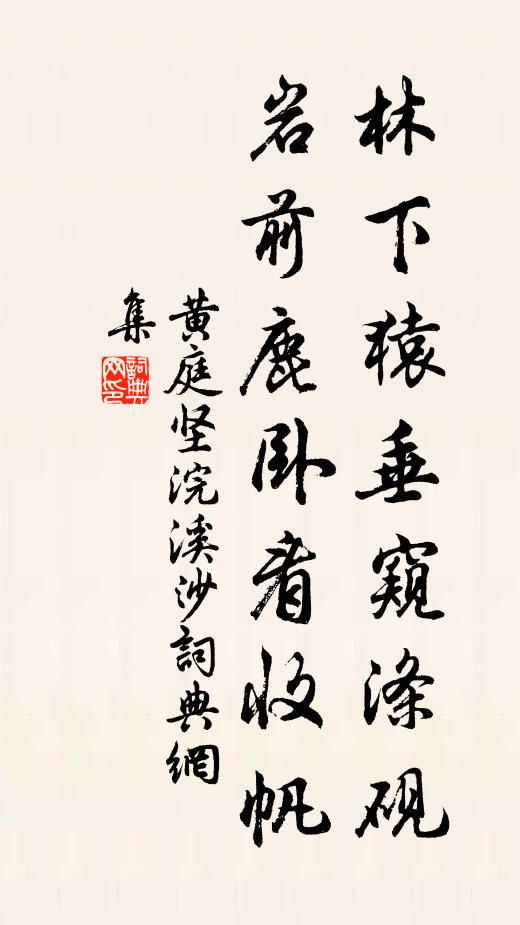 林下猿垂窥涤砚
岩前鹿卧看收帆
黄庭坚浣溪沙詞典網
集
詞典
网印